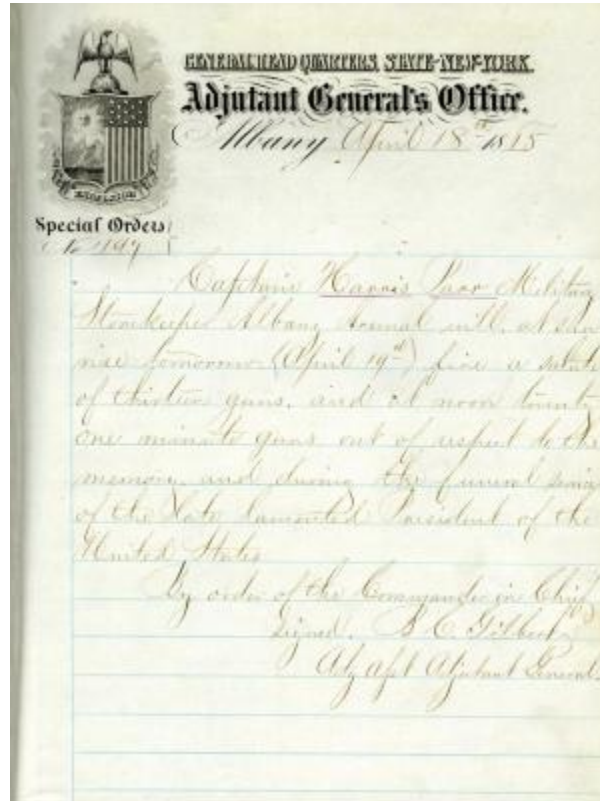 GENERAL HEAD QUARTERS, STATE-NEW-YORK.
Adjutant General's Office.
Albany April 18th 1865
EXCELSIOR
Special Orders
No 197
Captain Harris Parr Military
Storekeeper Albany Arsenal will, at sun
rise tomorrow (April 19th) fire a salute
of thirteen guns, and at noon twenty
one minute guns out of respect to the
memory, and during the funeral
of the late lamented President of the
United States
By order of the Commander in Chief
Signed.
Adjutant General